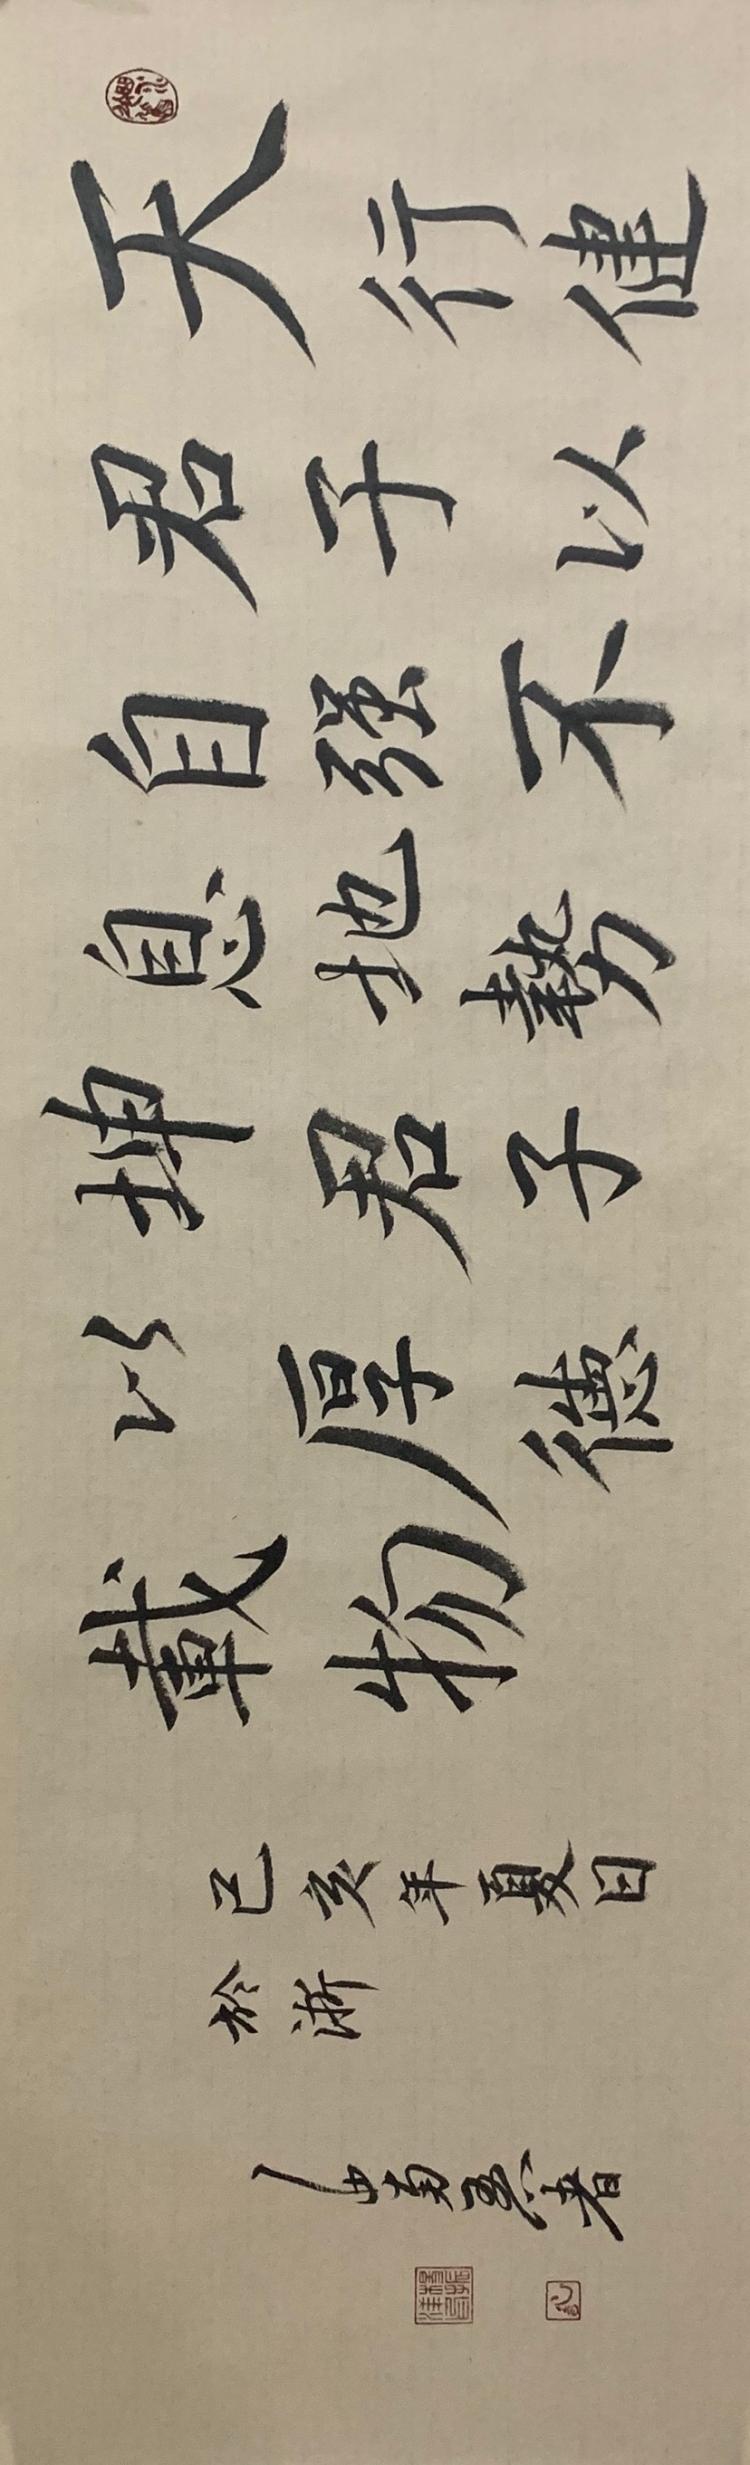 天行健
君子以
自强不
息地勢
坤君子
以厚德
載物
己亥年夏日
於浙
南 者